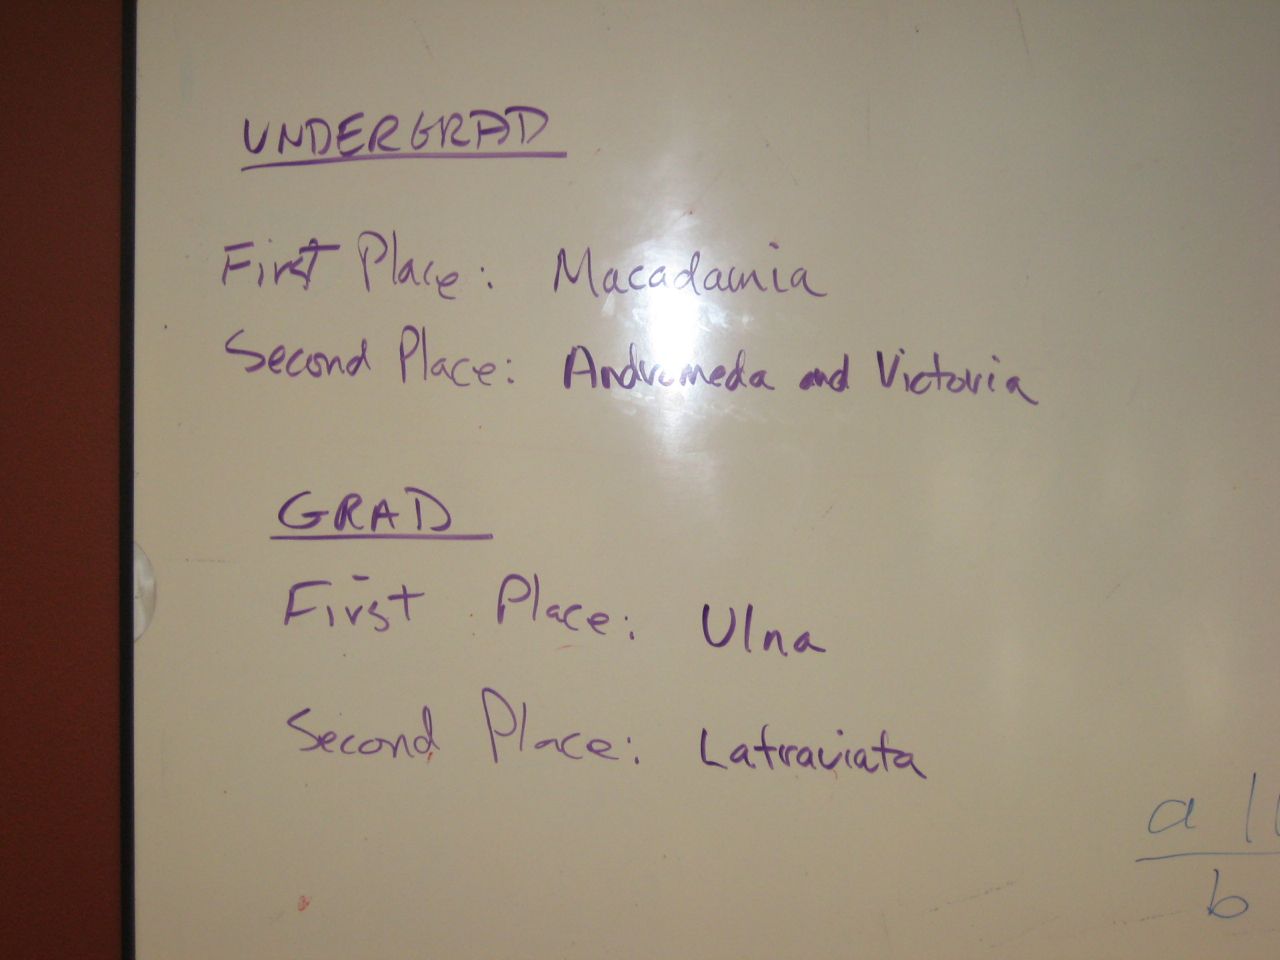 UNDERGRAD
First Place: Macadamia
Second Place: Andromeda and Victoria
GRAD
First Place: Ulna
Second Place: Latraviata
a
b